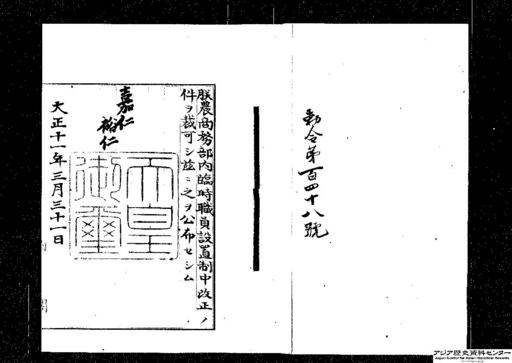 勅令第百四十八號
朕農商務部內臨時職員設置制中改正ノ
件ヲ裁可シ玆ニ之ヲ公布セシム
嘉仁
裕仁
天皇御璽
大正十一年三月三十一日
アジア歴史資料センター
Japan Center for Asian Historical Records